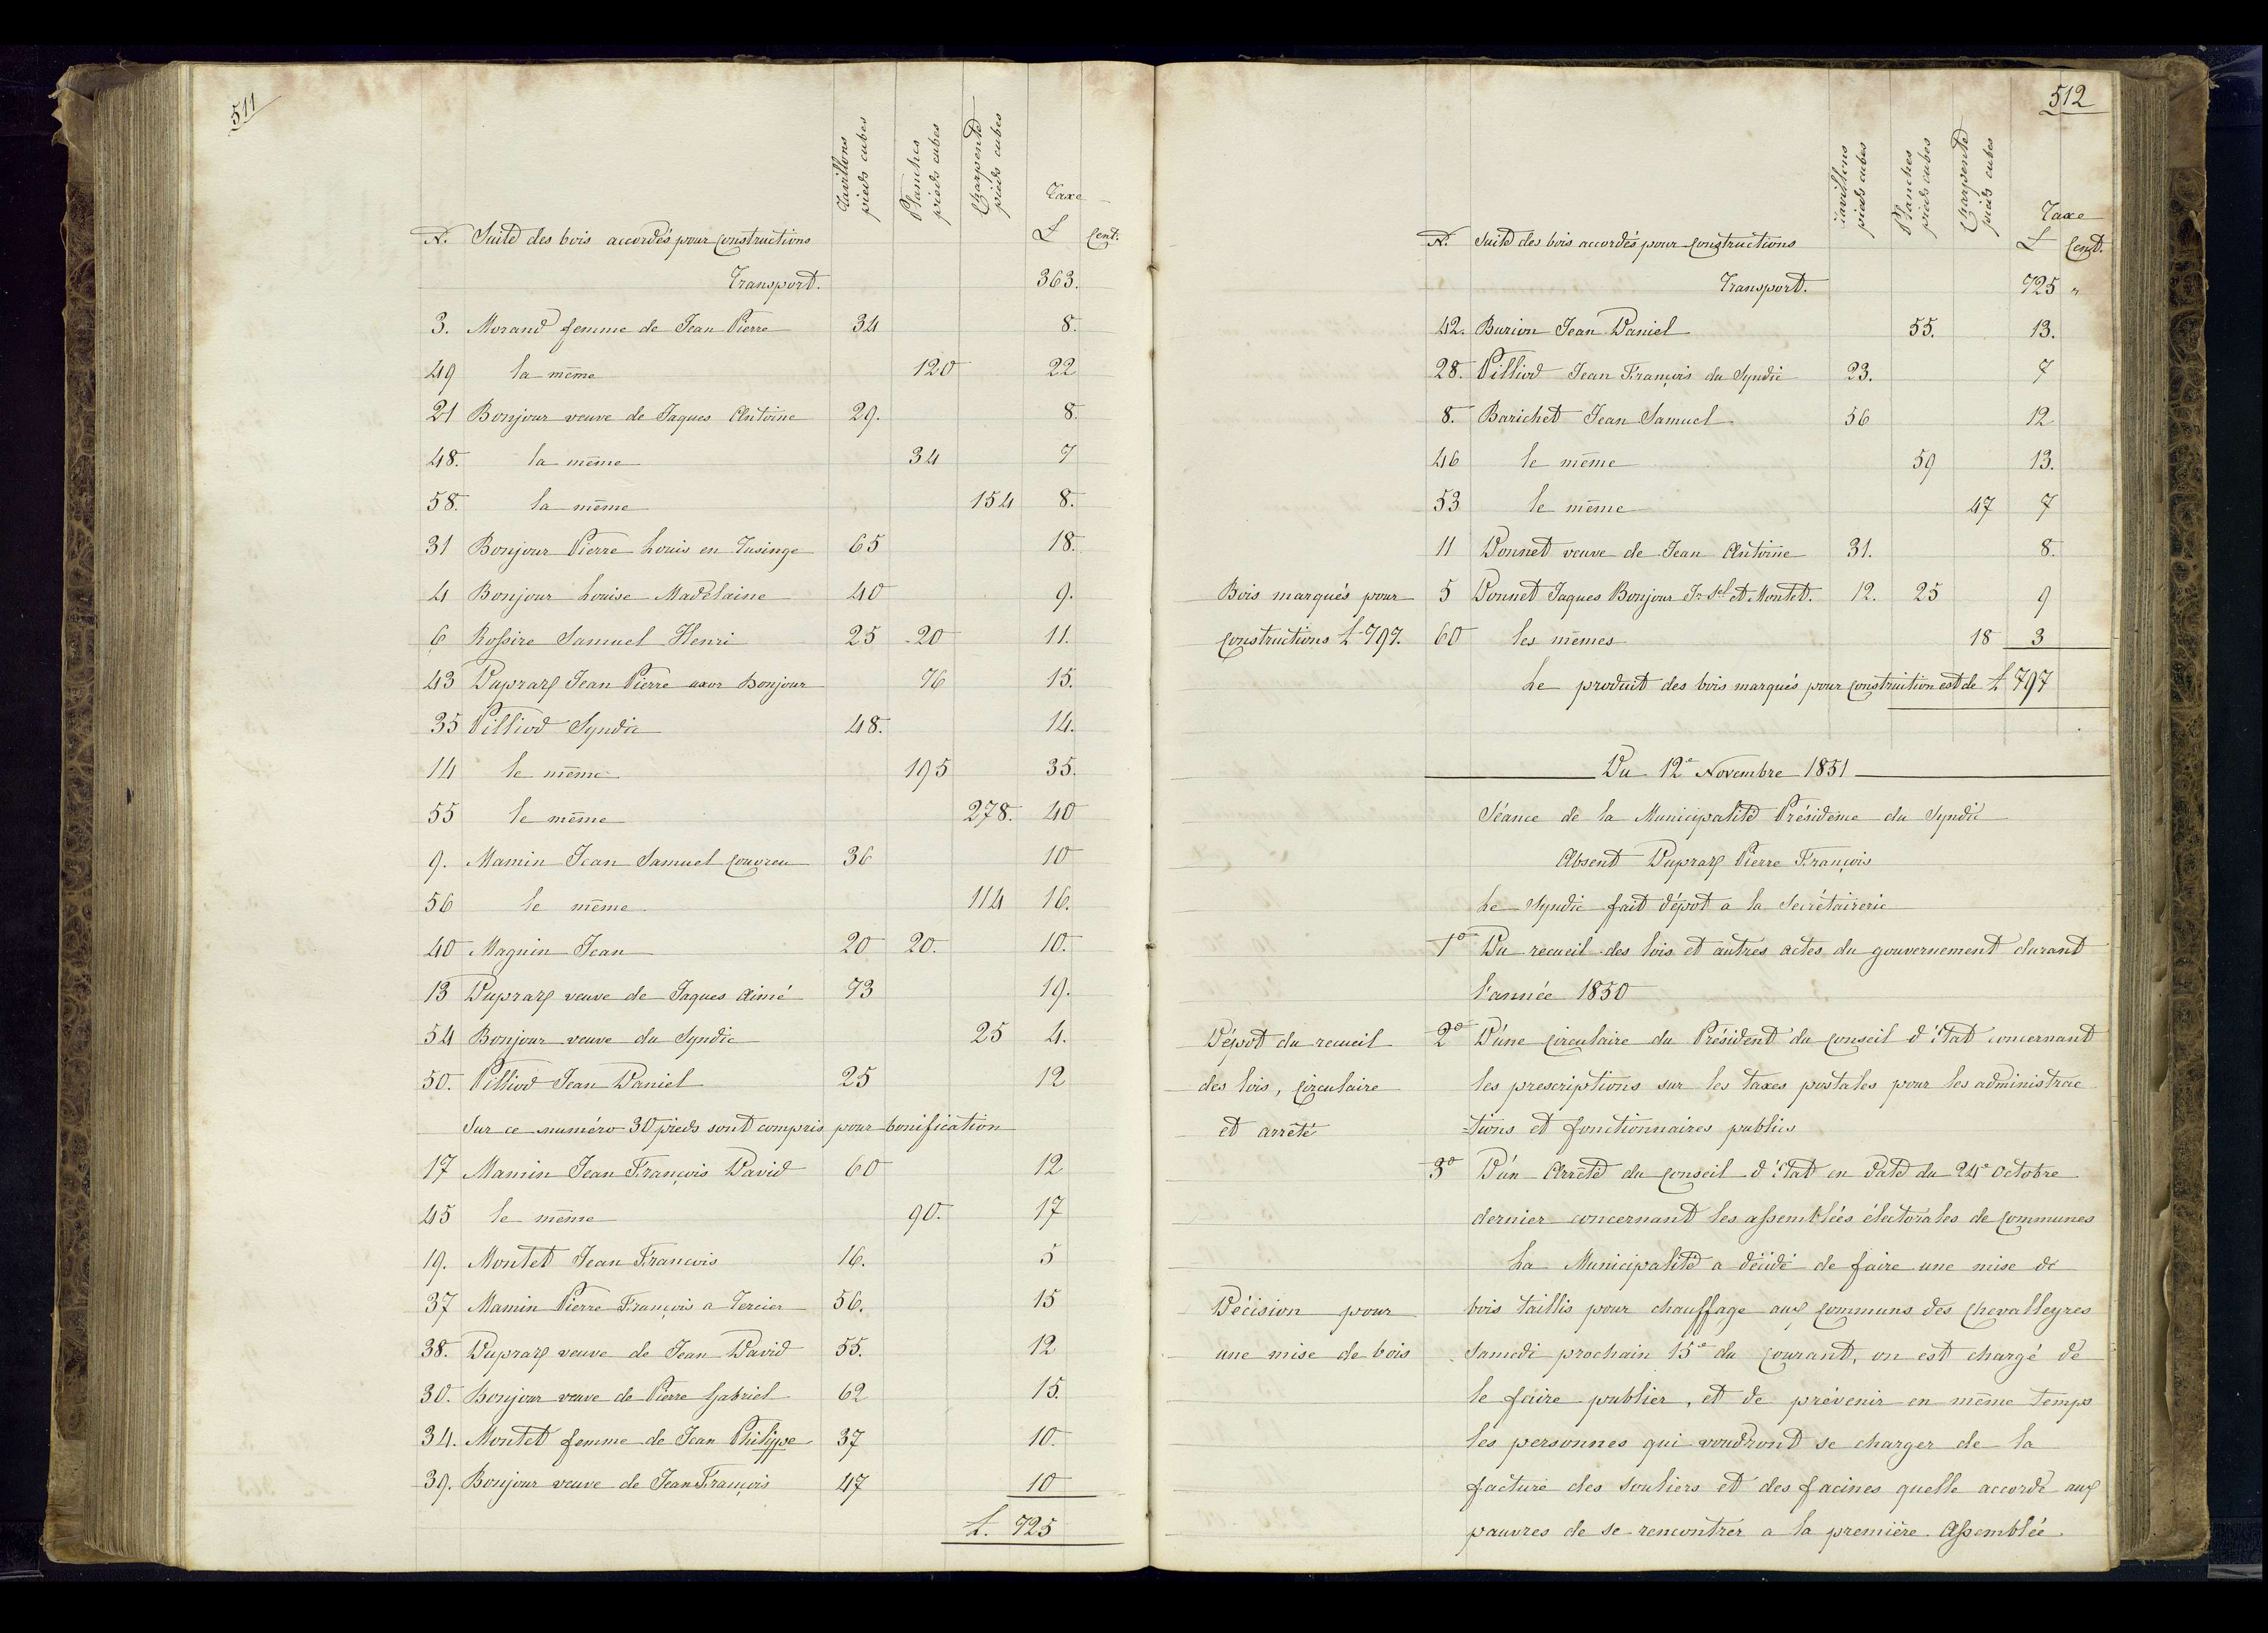 511
Tavillons pieds cubes
Planches pieds cubes
Charpente pieds cubes
Taxe
N. Suite des bois accordés pour constructions £ Cent.
Transport. 363.
3. Morand femme de Jean Pierre 34 8.
49 la même 120 22
21 Bonjour veuve de Jaques Antoine 29. 8.
48. la même 34 7
58. la même 154 8.
31 Bonjour Pierre Louis en Tusinge 65 18.
4 Bonjour Louise Madelaine 40 9.
6 Rossire Samuel Henri 25 20 11.
43 Dupraz Jean Pierre uxor Bonjour 76 15.
35 Pilliod Syndic 48. 14.
14 le même 195 35.
55 le même 278. 40
9. Mamin Jean Samuel Couvreu 36 10
56 le même 114 16.
40 Magnin Jean 20 20. 10.
13 Dupraz veuve de Jaques Aimé 73 19.
54 Bonjour veuve du Syndic 25 4.
50. Pilliod Jean Daniel 25 12
Sur ce numéro 30 pieds sont compris pour bonification
17 Mamin Jean François David 60 12
45 le même 90. 17
19. Montet Jean Francois 16. 5
37 Mamin Pierre François a Tercier 56. 15
38. Dupraz veuve de Jean David 55. 12
30. Bonjour veuve de Pierre Gabriel 62 15.
34. Montet femme de Jean Philippe 37 10.
39. Bonjour veuve de Jean François 47 10
£. 725
512
Tavillons pieds cubes
Planches pieds cubes
Charpente pieds cubes
Taxe
N. Suite des bois accordés pour constructions £ Cent.
Transport. 725 "
42. Burion Jean Daniel 55. 13.
28. Pilliod Jean François du Syndic 23. 7
8. Barichet Jean Samuel 56 12
46 le même 59 13.
53 le même 47 7
11 Donnet veuve de Jean Antoine 31. 8.
Bois marqués pour 5 Donnet Jaques Bonjour Jn Sel et Montet. 12. 25 9
constructions £ 797. 60 les mêmes 18 3
Le produit des bois marqués pour construition est de £ 797
Du 12e Novembre 1851
Séance de la Municipalité Présidence du Syndic
Absent Dupraz Pierre François
Le Syndic fait dépot a la Secrétairerie
1o Du recueil des lois et autres actes du gouvernement durant
l'année 1850
Dépot du recueil 2o D'une circulaire du Président du Conseil d'état concernant
des lois, circulaire les prescriptions sur les taxes postales pour les administrac
et arrêté =tions et fonctionnaires publics
3o D'un Arrêté du Conseil d'état en date du 24e Octobre
dernier concernant les assemblées électorales de communes
La Municipalité a décidé de faire une mise de
Décision pour bois taillis pour chauffage aux communs des Chevalleyres
une mise de bois Samedi prochain 15e du courant, on est chargé de
le faire publier, et de prévenir en même temps
les personnes qui voudront se charger de la
facture des souliers et des facines quelle accorde aux
pauvres de se rencontrer a la première Assemblée